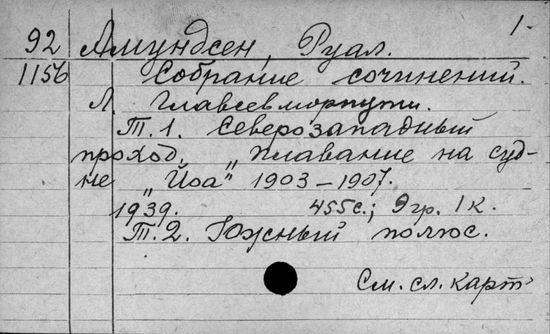 1.
92 Амундсен, Руал.
1156 Собрание сочинений.
Л. Главсевморпути.
Т.1. Северозападный
проход, „плавание на суд-
не „Йоа" 1903–1907.
1939. 455с.; 9гр. 1к.
Т.2. Южный полюс.
См. сл. карт